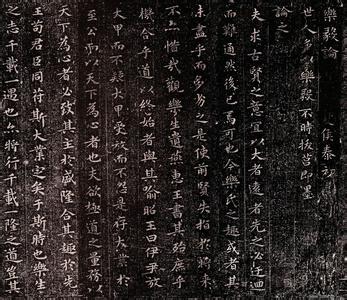 樂毅論 夏侯泰初
世人多以樂毅不時拔莒即墨
論之
夫求古賢之意宜以大者遠者先之必迂迴
而難通然後已焉可也今樂氏之趣或者其
未盡乎而多劣之是使前賢失指於將来
不亦惜哉觀樂生遺燕惠王書其殆庶乎
機合乎道以終始者與其喻昭王曰伊尹放
大甲而不疑大甲受放而不怨是存大業於
至公而以天下為心者也夫欲極道之量務以
天下為心者必致其主於盛隆合其趣於先
王苟君臣同符斯大業定矣于斯時也樂生
之志千載一遇也亦將行千載一隆之道豈其